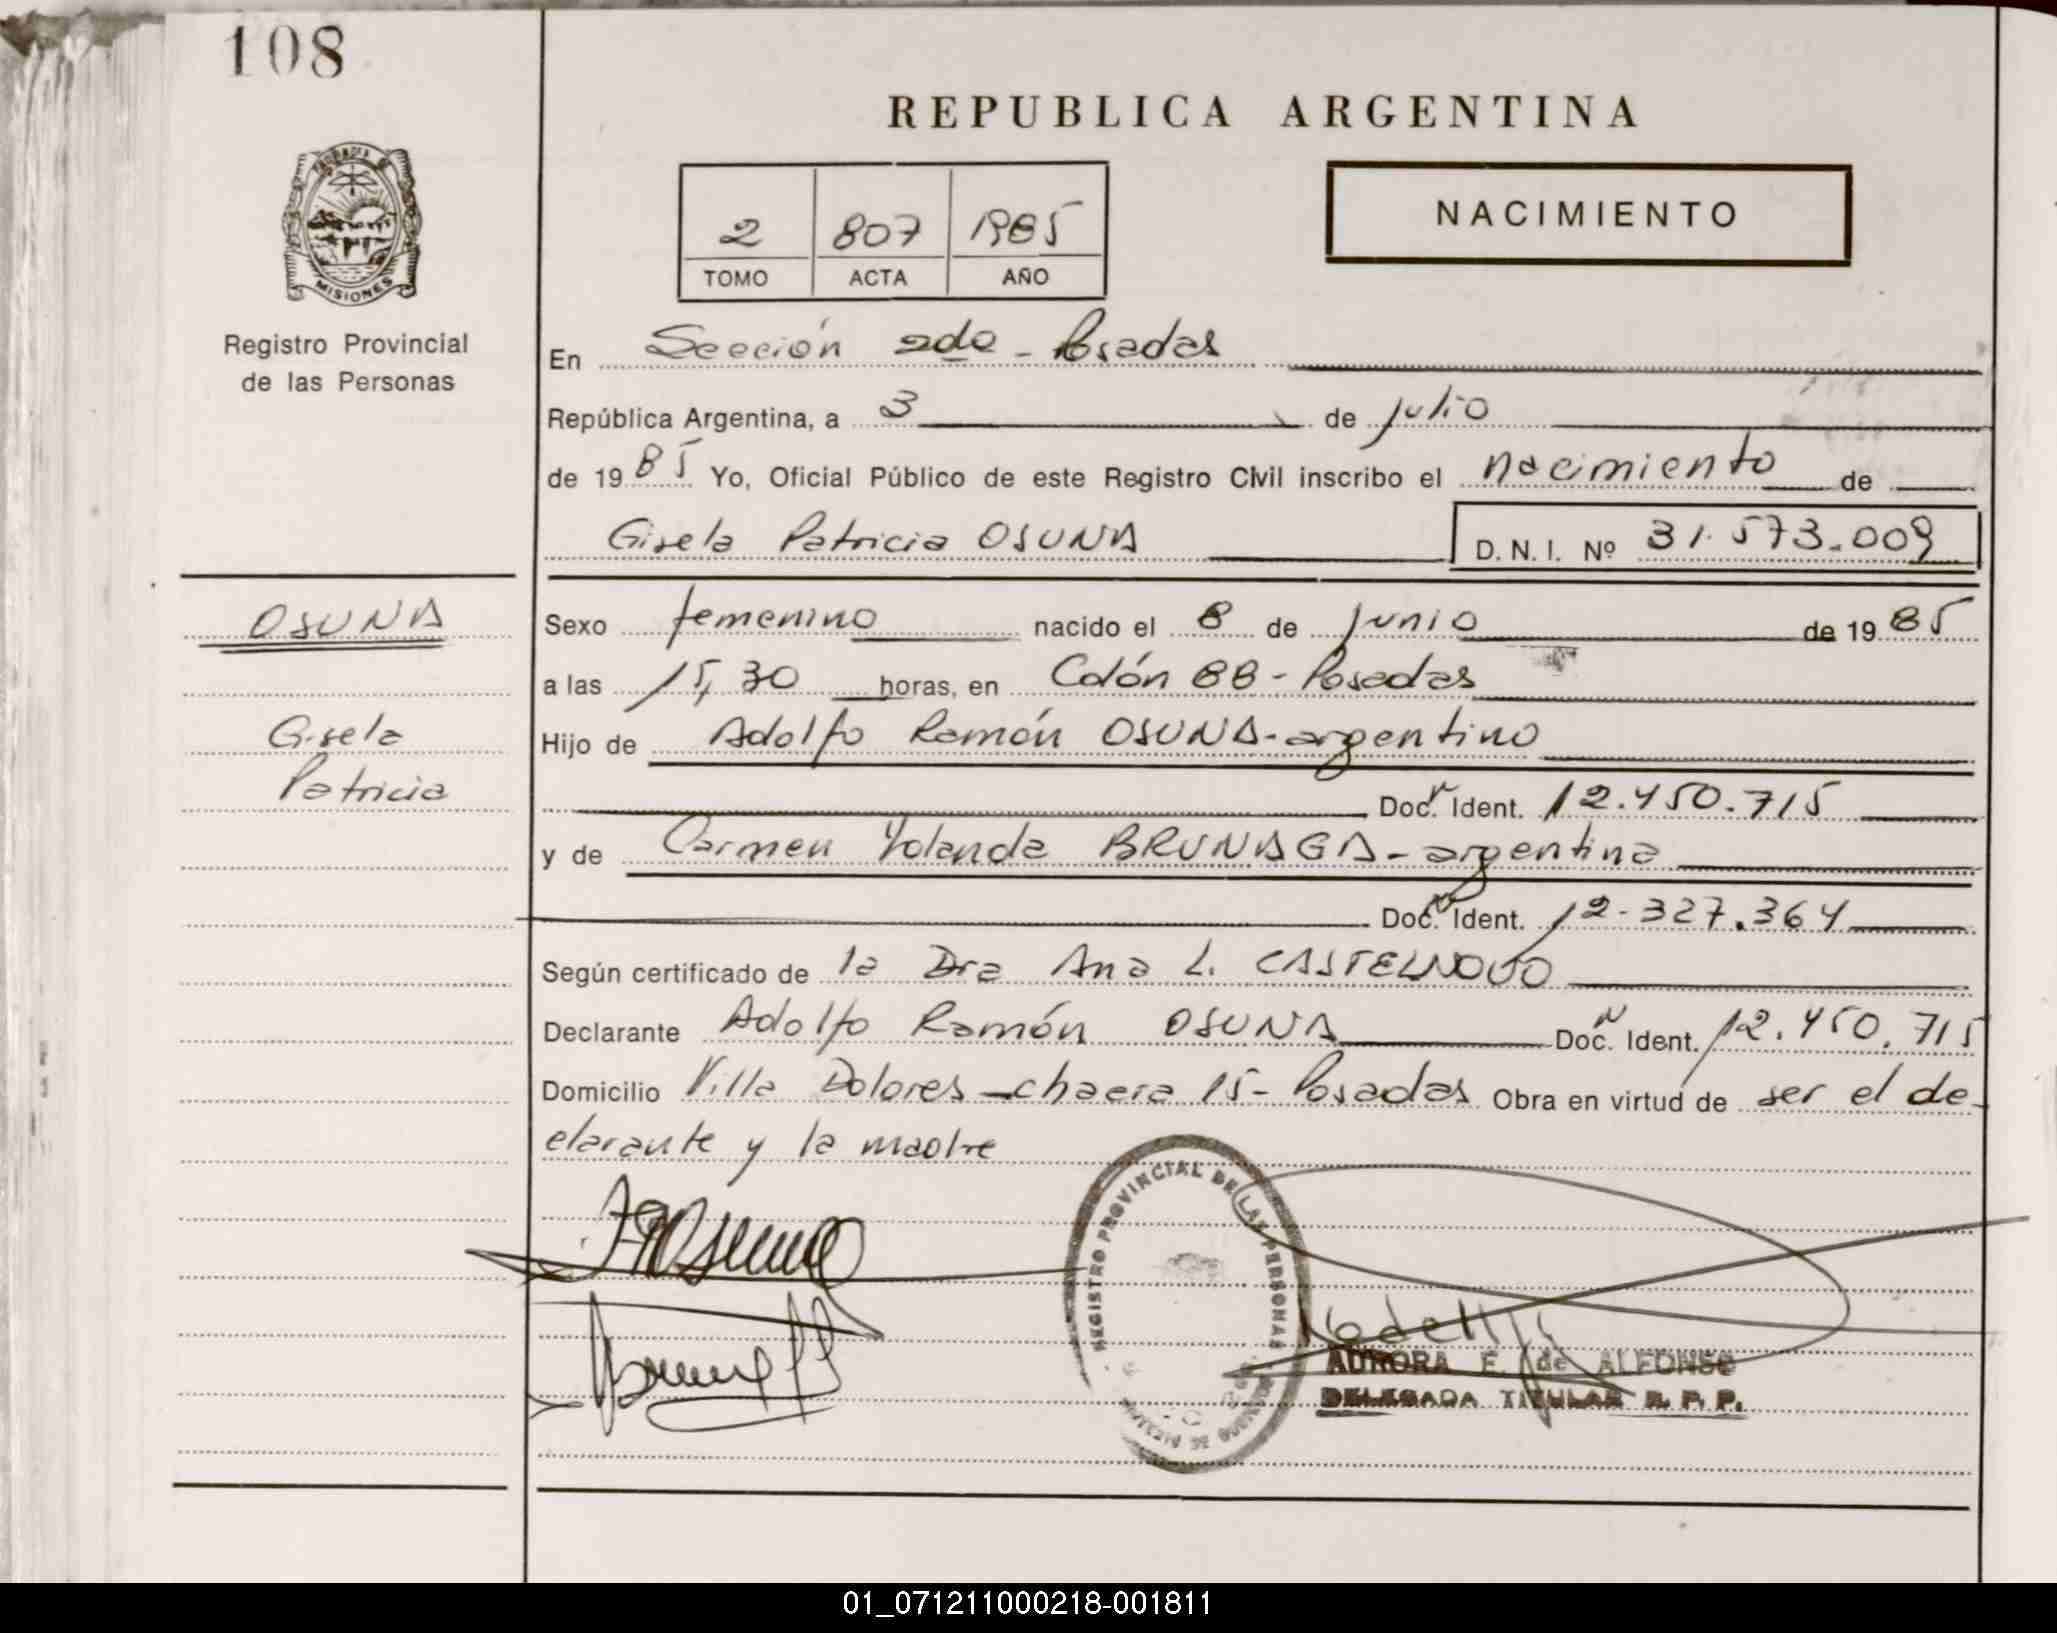 108
REPUBLICA ARGENTINA
PROVINCIA DE
MISIONES
Registro Provincial
de las Personas
2 807 1985
TOMO ACTA AÑO
NACIMIENTO
En Sección 2da - Posadas
República Argentina, a 3 de julio
de 1985 Yo, Oficial Público de este Registro Civil inscribo el nacimiento de
Gisela Patricia OSUNA D. N. I. Nº 31.573.009
OSUNA
Gisela
Patricia
Sexo femenino nacido el 8 de junio de 1985
a las 15,30 horas, en Colón 88 - Posadas
Hijo de Adolfo Ramón OSUNA - argentino
Doc. Ident. 12.450.715
y de Carmen Yolanda BRUNAGA - argentina
Doc. Ident. 12.327.364
Según certificado de la Dra Ana L. CASTELNOVO
Declarante Adolfo Ramón OSUNA Doc. Ident. 12.450.715
Domicilio Villa Dolores - chacra 15 - Posadas Obra en virtud de ser el de-
clarante y la madre
REGISTRO PROVINCIAL DE LAS PERSONAS
AURORA E. de ALFONSO
DELEGADA TITULAR R. P. P.
01_071211000218-001811